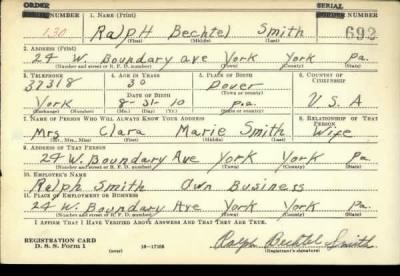 ORDER NUMBER 1. NAME (Print) SERIAL NUMBER
130 Ralph Bechtel Smith 692
(First) (Middle) (Last)
2. ADDRESS (Print)
24 W. Boundary ave York York Pa.
(Number and street or R. F. D. number) (Town) (County) (State)
3. TELEPHONE 4. AGE IN YEARS 5. PLACE OF BIRTH 6. COUNTRY OF CITIZENSHIP
37318 30 Dover
DATE OF BIRTH (Town or county)
York 8-31-10 Pa. U.S.A
(Exchange) (Number) (Mo.) (Day) (Yr.) (State or country)
7. NAME OF PERSON WHO WILL ALWAYS KNOW YOUR ADDRESS 8. RELATIONSHIP OF THAT PERSON
Mrs. Clara Marie Smith Wife
(Mr., Mrs., Miss) (First) (Middle) (Last)
9. ADDRESS OF THAT PERSON
24 W. Boundary Ave York York Pa
(Number and street or R. F. D. number) (Town) (County) (State)
10. EMPLOYER'S NAME
Ralph Smith Own Business
11. PLACE OF EMPLOYMENT OR BUSINESS
24 W. Boundary Ave York York Pa.
(Number and street or R. F. D. number) (Town) (County) (State)
I AFFIRM THAT I HAVE VERIFIED ABOVE ANSWERS AND THAT THEY ARE TRUE.
REGISTRATION CARD
D. S. S. Form 1 (over) 16-17105 Ralph Bechtel Smith
(Registrant's signature)